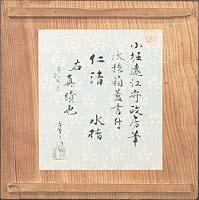 小堀遠江守政房筆
水指箱蓋書付
仁清 水指
右真蹟也